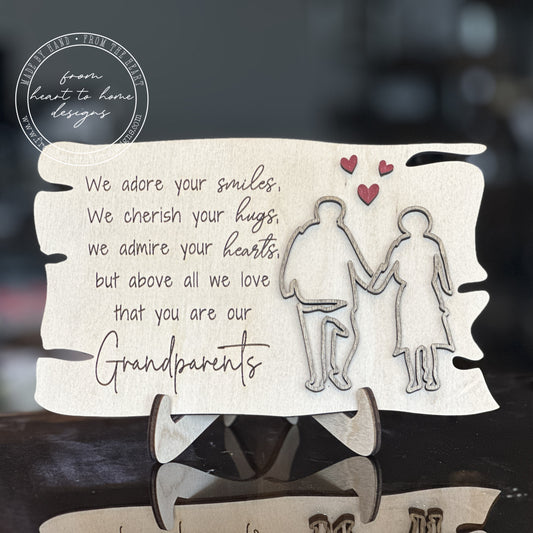 MADE BY HAND • FROM THE HEART
from
heart to home
designs
We adore your smiles,
We cherish your hugs,
we admire your hearts,
but above all we love
that you are our
Grandparents